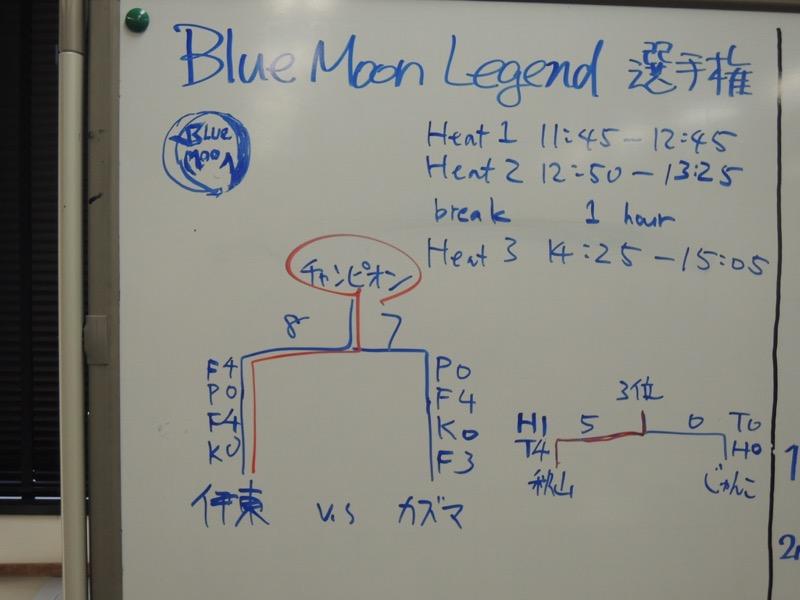 Blue Moon Legend 選手権
BLUE
MOON
Heat 1 11:45 - 12:45
Heat 2 12:50 - 13:25
break 1 hour
Heat 3 14:25 - 15:05
チャンピオン
8 7
F4
P0
F4
K0
P0
F4
K0
F3
伊東 v.s カズマ
3位
H1 5 0 T0
T4 H0
秋山 じゅんこ
1
2n